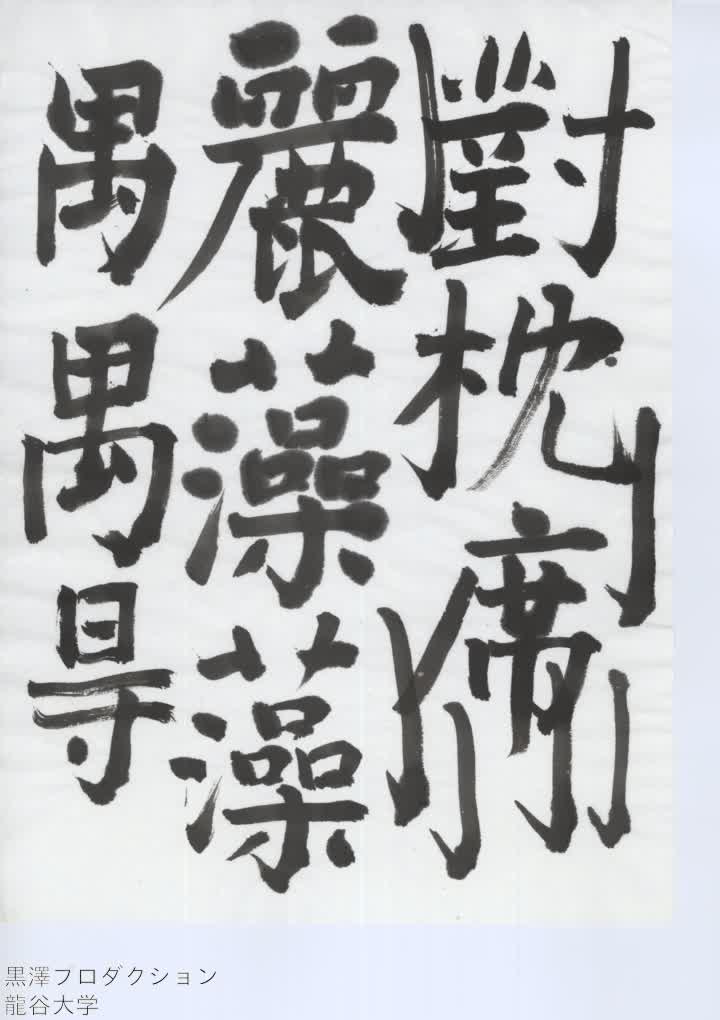 對枕席
麗藻藻
禺禺㝵
黒澤プロダクション
龍谷大学